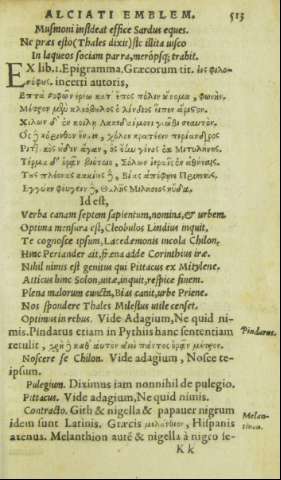 ALCIATI EMBLEM. 513
Musmoni insideat effice Sardus eques.
Ne præs esto (Thales dixit) sic illita visco
In laqueos sociam parra, meropsq; trahit.
EX lib.1. Epigramma. Græcorum tit. εἰς φιλο-
σόφους. incerti autoris,
Ἑπτὰ σοφῶν ἐρέω κατ' ἔπος πόλιν οὔνομα, φωνήν.
Μέτρον μὲν κλεόβουλος ὁ λίνδιος εἶπεν ἄριστον.
Χίλων δ' ἐν κοίλῃ Λακεδαίμονι γνῶθι σεαυτόν.
Ὃς ἡ κόρινθον ἔναιε, χόλου κρατέειν περίανδρος
Πιττακὸς οὐδὲν ἄγαν, ὃς ἔην γένος ἐκ Μιτυλήνης.
Τέρμα δ' ὁρᾷν βιότοιο, Σόλων ἱεραῖς ἐν ἀθήναις.
Τοὺς πλέονας κακίους ἢ, Βίας ἀπέφηνε Πριηνεύς.
Ἐγγύην φεύγειν ἢ, Θαλῆς Μιλήσιος ηὔδα.
Id est,
Verba canam septem sapientum, nomina, & urbem.
Optima mensura est, Cleobulus Lindius inquit,
Te cognosce ipsum, Lacedæmonis incola Chilon.
Hinc Periander ait, fræna adde Corinthius iræ.
Nihil nimis est genitus qui Pittacus ex Mitylene.
Atticus hinc Solon, vitæ, inquit, respice finem.
Plena malorum cuncta, Bias canit, urbe Priene.
Nos spondere Thales Milesius utile censet.
Optimus in rebus. Vide Adagium, Ne quid ni-
mis. Pindarus etiam in Pythiis hanc sententiam
Pindarus.
retulit, χρὴ ἢ καθ' αὑτὸν αἰεὶ παντὸς ὁρᾷν μέτρον.
Noscere se Chilon. Vide adagium, Nosce te-
ipsum.
Pulegium. Diximus iam nonnihil de pulegio.
Pittacus. Vide adagium, Ne quid nimis.
Contracto. Gith & nigella & papauer nigrum
idem sunt Latinis. Græcis μελάνθιον, Hispanis
Melan-
thion.
atenus. Melanthion autē & nigella à nigro se-
K k